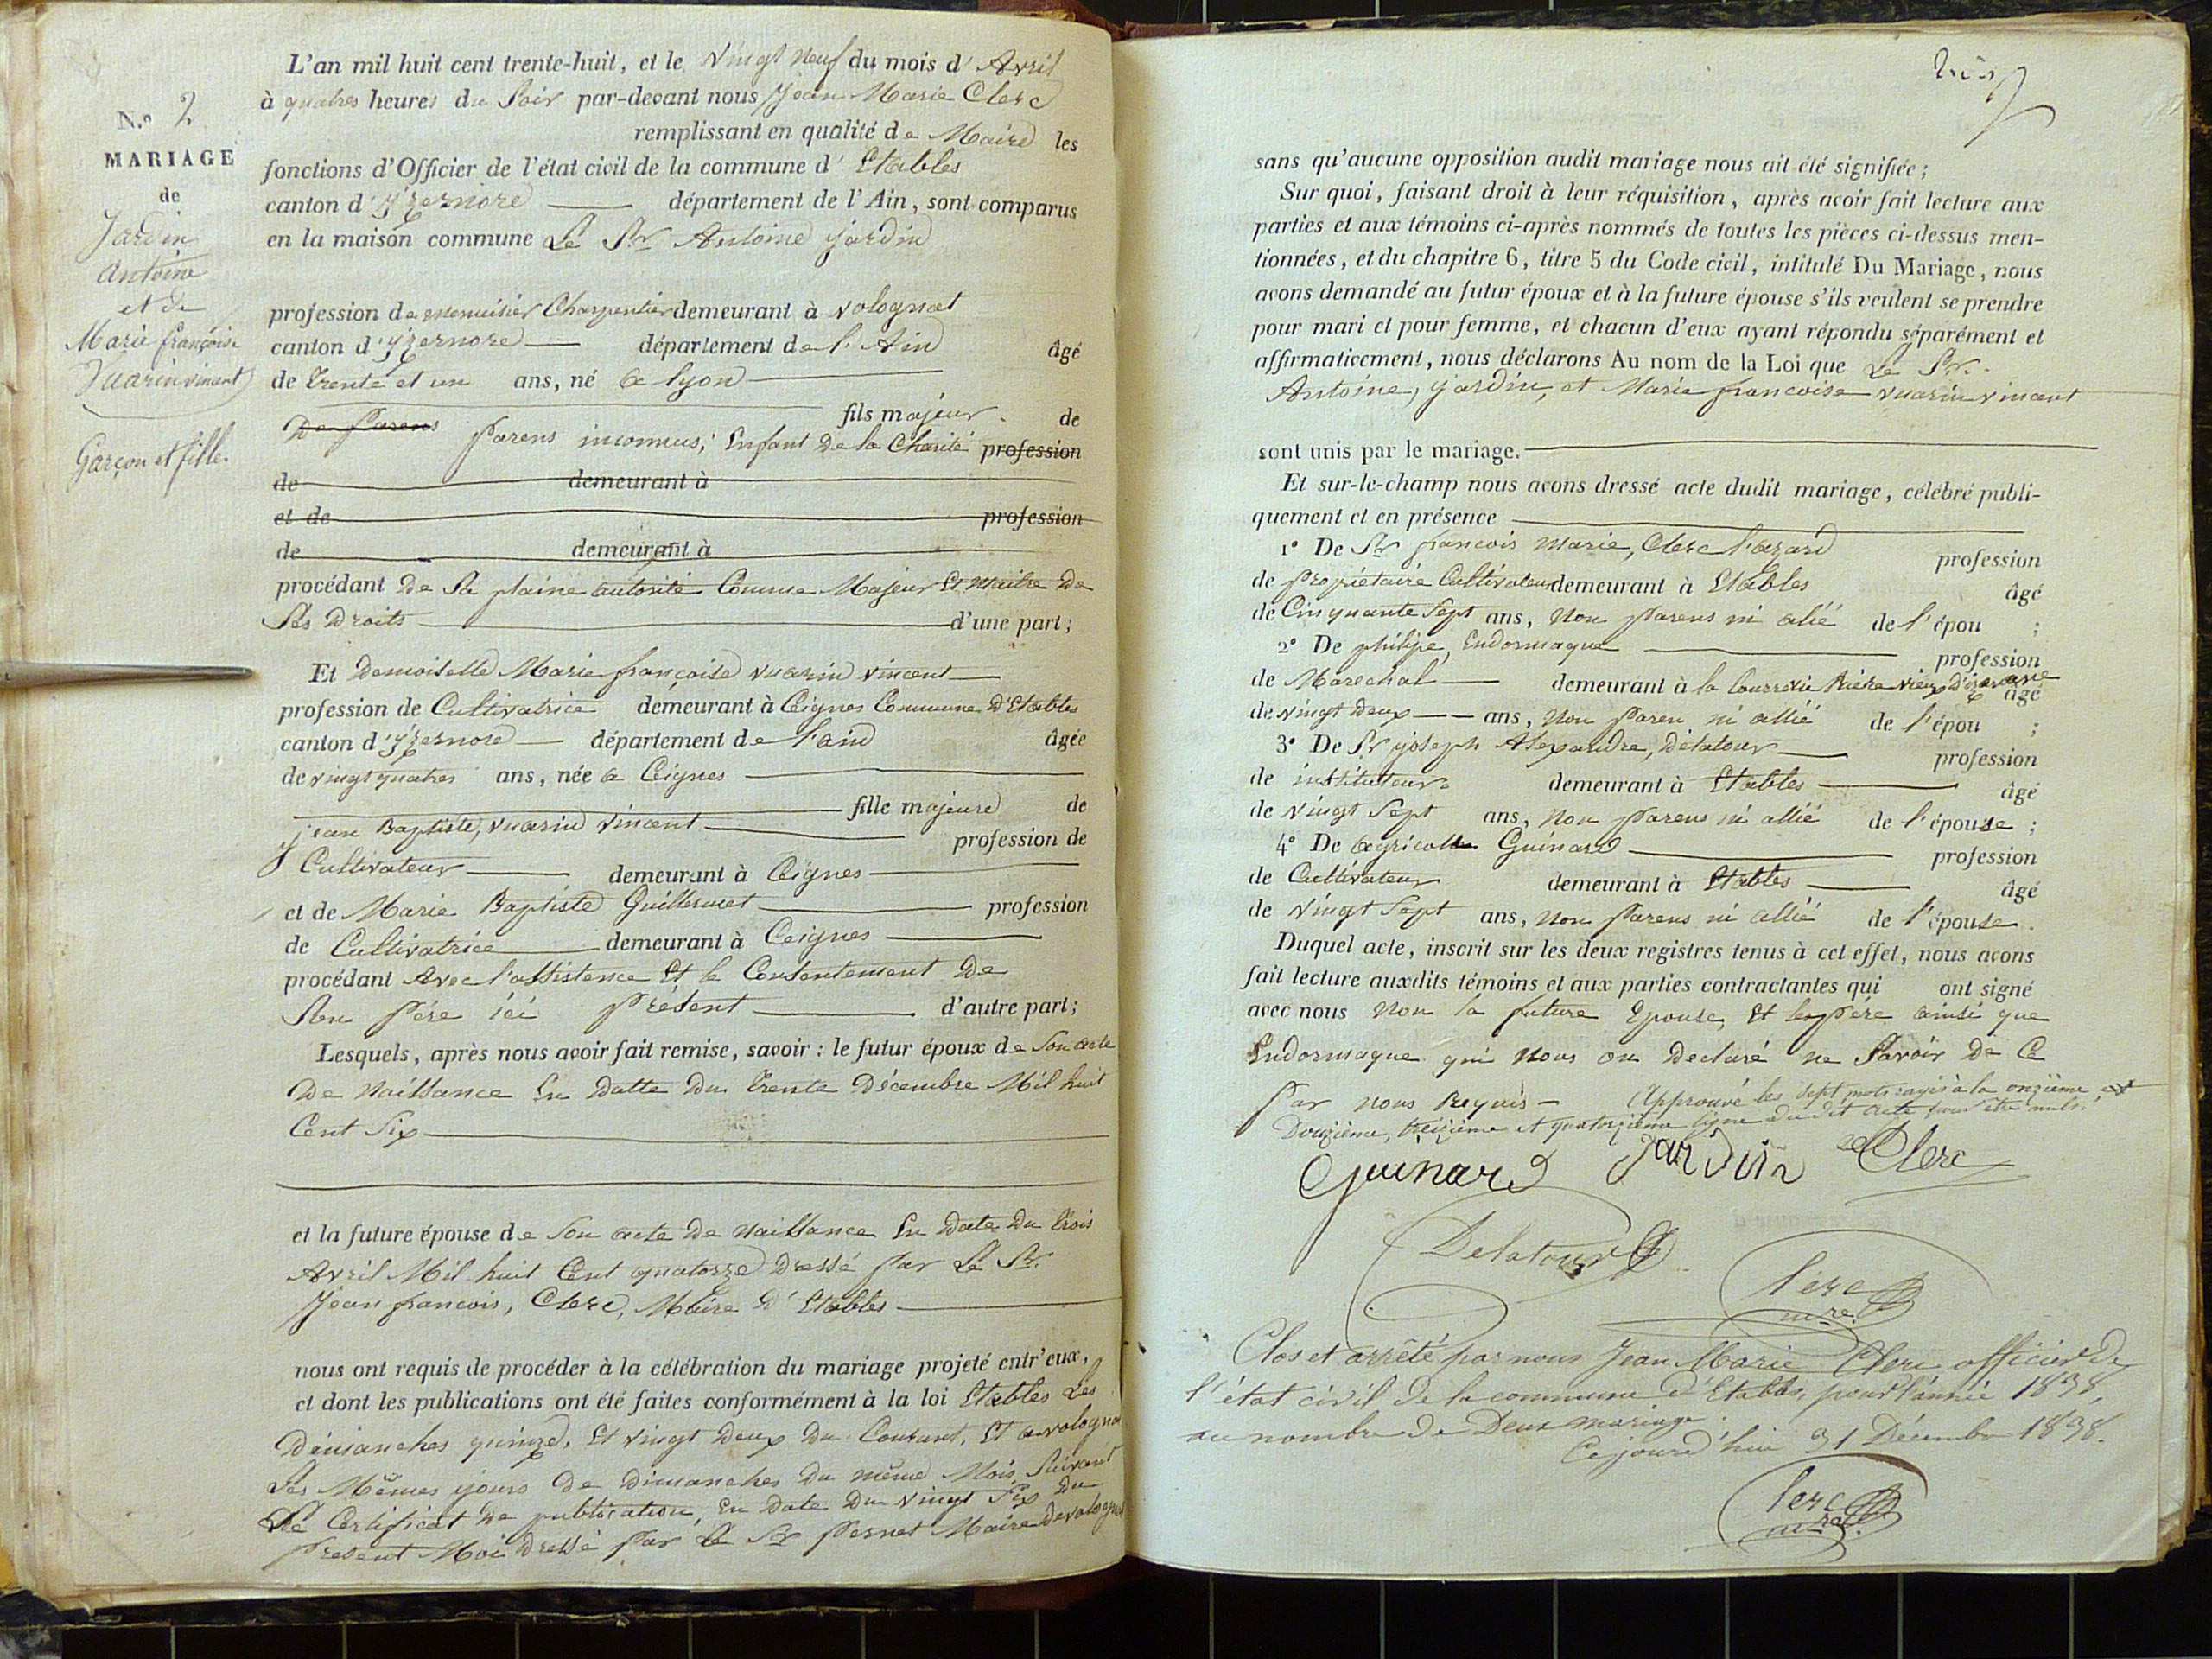 N.º 2
MARIAGE
de
Jardin
antoine
et de
Marie françoise
Vuarin vincent
Garçon et fille.
L'an mil huit cent trente-huit, et le vingt neuf du mois d' Avril
à quatres heures du Soir par-devant nous Jean Marie Clerc
remplissant en qualité de Maire les
fonctions d'Officier de l'état civil de la commune d' Etables
canton d' yzernore département de l'Ain, sont comparus
en la maison commune Le Sr Antoine jardin
profession de menuisier Charpentier demeurant à volognat
canton d' yzernore département de l'Ain âgé
de trente et un ans, né a lyon
fils majeur de
De Parens Parens inconnus, Enfant De la Charité profession
de demeurant à
et de profession
de demeurant à
procédant De Sa plaine autorité Comme Majeur Et Maitre De
Ses Droits d'une part;
Et Demoiselle Marie françoise vuarin vincent
profession de Cultivatrice demeurant à Ceignes Commune D'Etables
canton d' yzernore département de l'ain âgée
de vingt quatres ans, née a Ceignes
fille majeure de
jean Baptiste, vuarin vincent profession de
Cultivateur demeurant à Ceignes
et de Marie Baptiste Guillermet profession
de Cultivatrice demeurant à Ceignes
procédant Avec l'assistence Et le Consentement De
Son Pére ici Présent d'autre part;
Lesquels, après nous avoir fait remise, savoir : le futur époux de Son acte
De Naissance En Datte Du trente Décembre Mil huit
Cent Six
et la future épouse de Son acte De Naissance En Date Du trois
Avril Mil huit Cent quatorze Dressé Par Le Sr.
Jean francois, Clerc, Maire D' Etables
nous ont requis de procéder à la célébration du mariage projeté entr'eux,
et dont les publications ont été faites conformément à la loi Etables Les
Dimanches quinze, Et vingt Deux Du Courant, Et a volognat
Les Mêmes jours De Dimanches Du même Mois, Suivant
Le Certificat De publication, En Date Du vingt Six Du
Présent Moi Dressé Par Le Sr Pernet Maire De volognat
sans qu'aucune opposition audit mariage nous ait été signifiée;
Sur quoi, faisant droit à leur réquisition, après avoir fait lecture aux
parties et aux témoins ci-après nommés de toutes les pièces ci-dessus men-
tionnées, et du chapitre 6, titre 5 du Code civil, intitulé Du Mariage, nous
avons demandé au futur époux et à la future épouse s'ils veulent se prendre
pour mari et pour femme, et chacun d'eux ayant répondu séparément et
affirmativement, nous déclarons Au nom de la Loi que Le Sr.
Antoine, jardin, et Marie francoise vuarin vincent
sont unis par le mariage.
Et sur-le-champ nous avons dressé acte dudit mariage, célébré publi-
quement et en présence
1º De Sr francois Marie, Clerc l'azard profession
de Propriétaire Cultivateur demeurant à Etables âgé
de Cinquante Sept ans, Non Parens ni alié de l'épou ;
2º De philipe, Endormaque profession
de Marechal demeurant à la âgé
de vingt Deux ans, Non Paren ni allié de l'épou ;
3º De Sr joseph Alexandre, Délatour profession
de instituteur demeurant à Etables âgé
de vingt Sept ans, Non Parens ni allié de l'épouse ;
4º De agricolle Guinard profession
de Cultivateur demeurant à Etables âgé
de vingt Sept ans, Non Parens ni allié de l'épouse.
Duquel acte, inscrit sur les deux registres tenus à cet effet, nous avons
fait lecture auxdits témoins et aux parties contractantes qui ont signé
avec nous Non la future Epouse, Et Père ainsi que
Endormaque qui Nous on Declaré ne Savoir De Ce
Par nous Requis Approuvé les sept mots rayés à la onzième et
Douzième, treizième et quatorzième ligne du dit acte pour être nuls.
Guinard Jardin Clerc
Delatour
Clerc
mre.
Clos et arrêté par nous Jean Marie Clerc officier de
l'état civil de la commune d'Etables, pour l'année 1838,
au nombre de Deux mariage.
Cejourd'hui 31 Décembre 1838.
Clerc
mre.